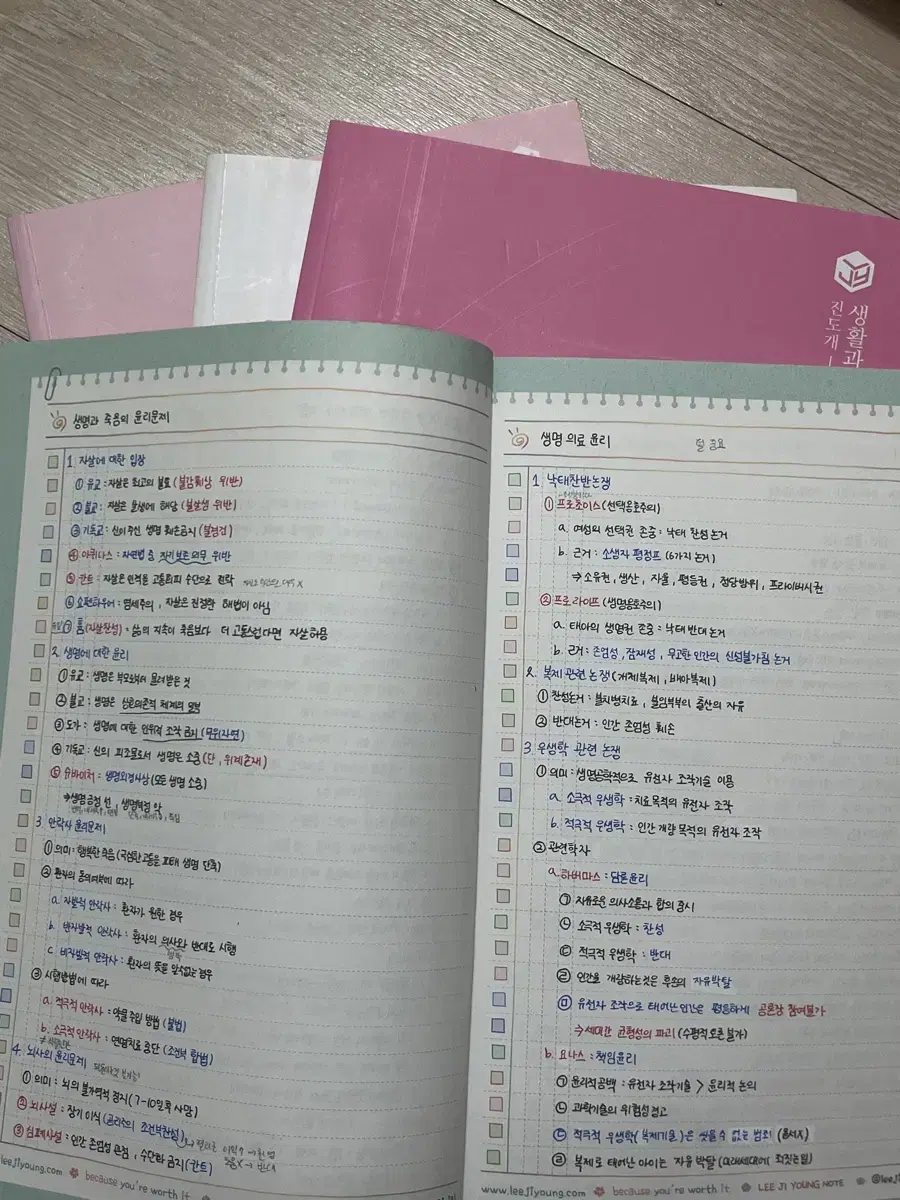 JY
생활과
진도개
생명과 죽음의 윤리문제
1. 자살에 대한 입장
① 유교 : 자살은 최고의 불효 (불감훼상 위반)
② 불교 : 자살은 살생에 해당 (불살생 위반)
③ 기독교 : 신이 주신 생명 훼손금지 (불경검)
④ 아퀴나스 : 자연법 중 자기보존의무 위반
⑤ 칸트 : 자살은 인격을 고통회피 수단으로 전락
⑥ 쇼펜하우어 : 염세주의, 자살은 진정한 해법이 아님
⑦ 흄 (자살찬성) = 삶의 지속이 죽음보다 더 고통스럽다면 자살허용
2. 생명에 대한 윤리
① 유교 : 생명은 부모로부터 물려받은 것
② 불교 : 생명은 상호의존적 체계의
③ 도가 : 생명에 대한 인위적 조작 금지 (무위자연)
④ 기독교 : 신의 피조물로서 생명은 소중 (단, 위계존재)
⑤ 슈바이처 : 생명외경사상 (모든 생명 소중)
⇒ 생명긍정 선, 생명부정 악
3. 안락사 윤리문제
① 의미 : 행복한 죽음 (극심한 고통을 피해 생명 단축)
② 환자의 동의여부에 따라
a. 자발적 안락사 : 환자가 원한 경우
b. 반자발적 안락사 : 환자의 의사와 반대로 시행
c. 비자발적 안락사 : 환자의 뜻을 알 수 없는 경우
③ 시행방법에 따라
a. 적극적 안락사 : 약물 주입 방법 (불법)
b. 소극적 안락사 : 연명치료 중단 (조건부 합법)
4. 뇌사의 윤리문제
① 의미 : 뇌의 불가역적 정지 (7-10일 후 사망)
② 뇌사설 : 장기 이식 (공리주의 조건부찬성)
③ 심폐사설 : 인간 존엄성 관점, 수단화 금지 (칸트)
leejiyoung.com because you're worth it
생명 의료 윤리
1. 낙태찬반논쟁
① 프로초이스 (선택옹호주의)
a. 여성의 선택권 존중 : 낙태 찬성 논거
b. 근거 : 소생자 평정프 (6가지 논거)
⇒ 소유권, 생산, 자율, 평등권, 정당방위, 프라이버시권
② 프로라이프 (생명옹호주의)
a. 태아의 생명권 존중 : 낙태 반대 논거
b. 근거 : 존엄성, 잠재성, 무고한 인간의 신성불가침 논거
2. 복제 관련 논쟁 (개체복제, 배아복제)
① 찬성논거 : 불치병치료, 불임부부의 출산의 자유
② 반대논거 : 인간 존엄성 훼손
3. 우생학 관련 논쟁
① 의미 : 생명공학적으로 유전자 조작기술 이용
a. 소극적 우생학 : 치료목적의 유전자 조작
b. 적극적 우생학 : 인간 개량 목적의 유전자 조작
② 관련학자
a. 하버마스 : 담론윤리
㉠ 자유로운 의사소통과 합의 중시
㉡ 소극적 우생학 : 찬성
㉢ 적극적 우생학 : 반대
㉣ 인간을 개량하는것은 후손의 자유박탈
㉤ 유전자 조작으로 태어난 인간은 평등하게 공론장 참여불가
⇒ 세대간 균형성의 파괴 (수평적 오류 불가)
b. 요나스 : 책임윤리
㉠ 윤리적공백 : 유전자 조작기술 > 윤리적 논의
㉡ 과학기술의 위험성 경고
㉢ 적극적 우생학 (복제기술) 은 씻을 수 없는 범죄 (용서X)
㉣ 복제로 태어난 아이는 자유 박탈 (미래세대에
www.leejiyoung.com because you're worth it LEE JI YOUNG NOTE @leeji